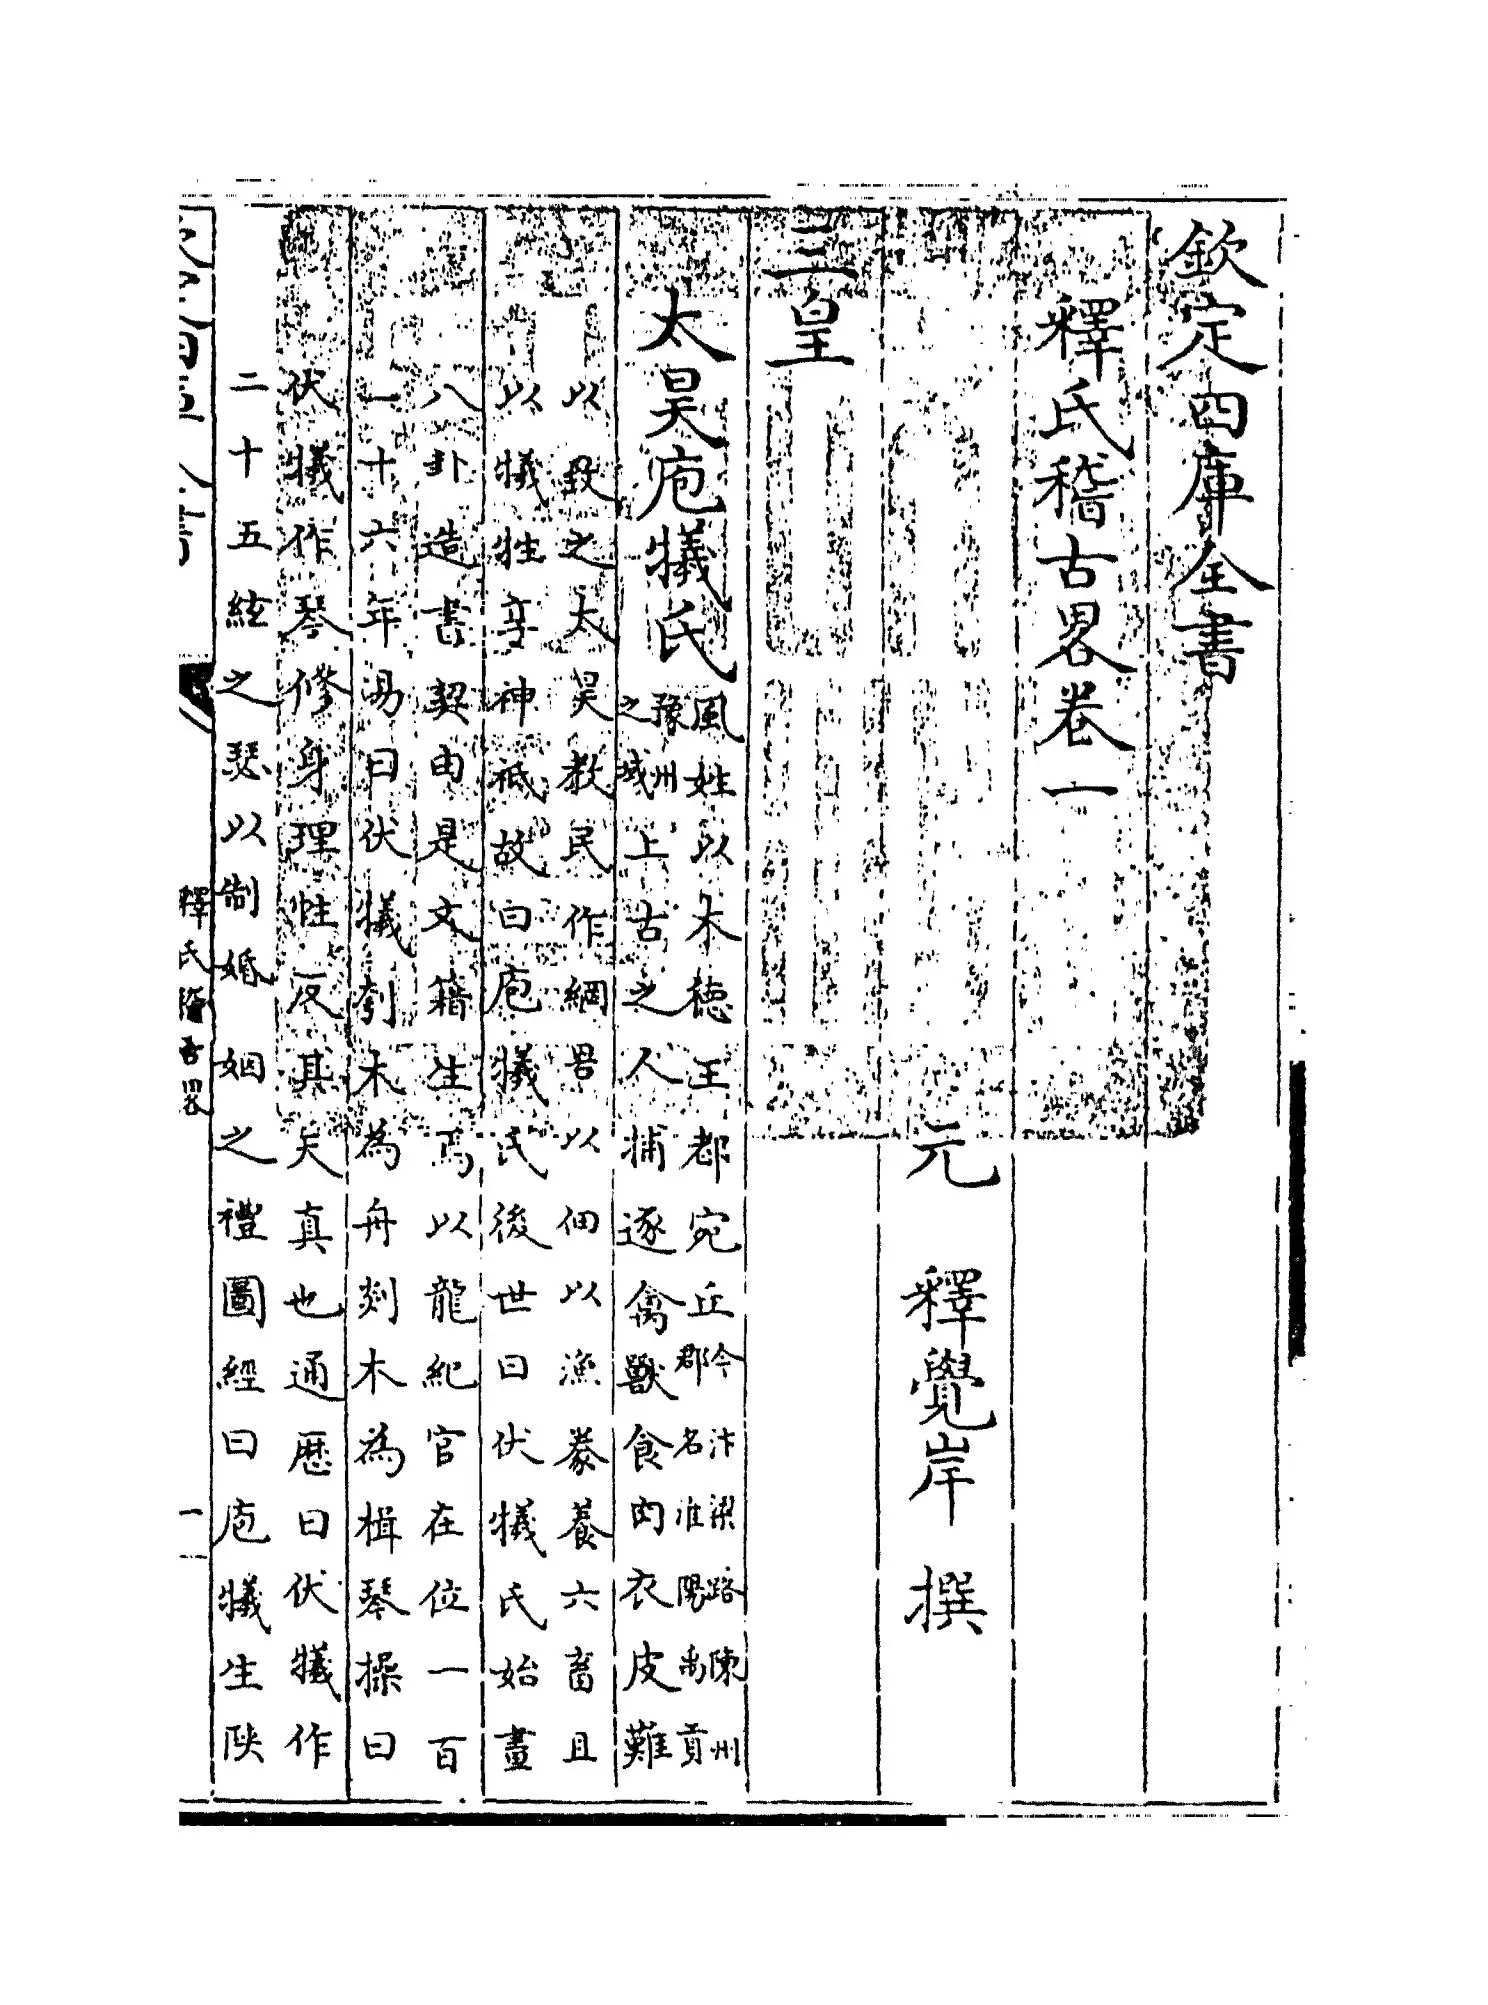 欽定四庫全書
釋氏稽古畧卷一
元 釋覺岸 撰
三皇
太昊庖犧氏
風姓以木徳王都宛丘
今汴梁路陳州
郡名淮陽禹貢
豫州
之域
上古之人捕逐禽獸食肉衣皮難
以致之太昊教民作網罟以佃以漁豢養六畜且
以犧牲享神祗故曰庖犧氏後世曰伏犧氏始畫
八卦造書契由是文籍生焉以龍紀官在位一百
一十六年易曰伏犧刳木為舟剡木為楫琴操曰
伏犧作琴修身理性反其天真也通歴曰伏犧作
二十五絃之瑟以制婚姻之禮圖經曰庖犧生陝
釋氏稽古畧
一